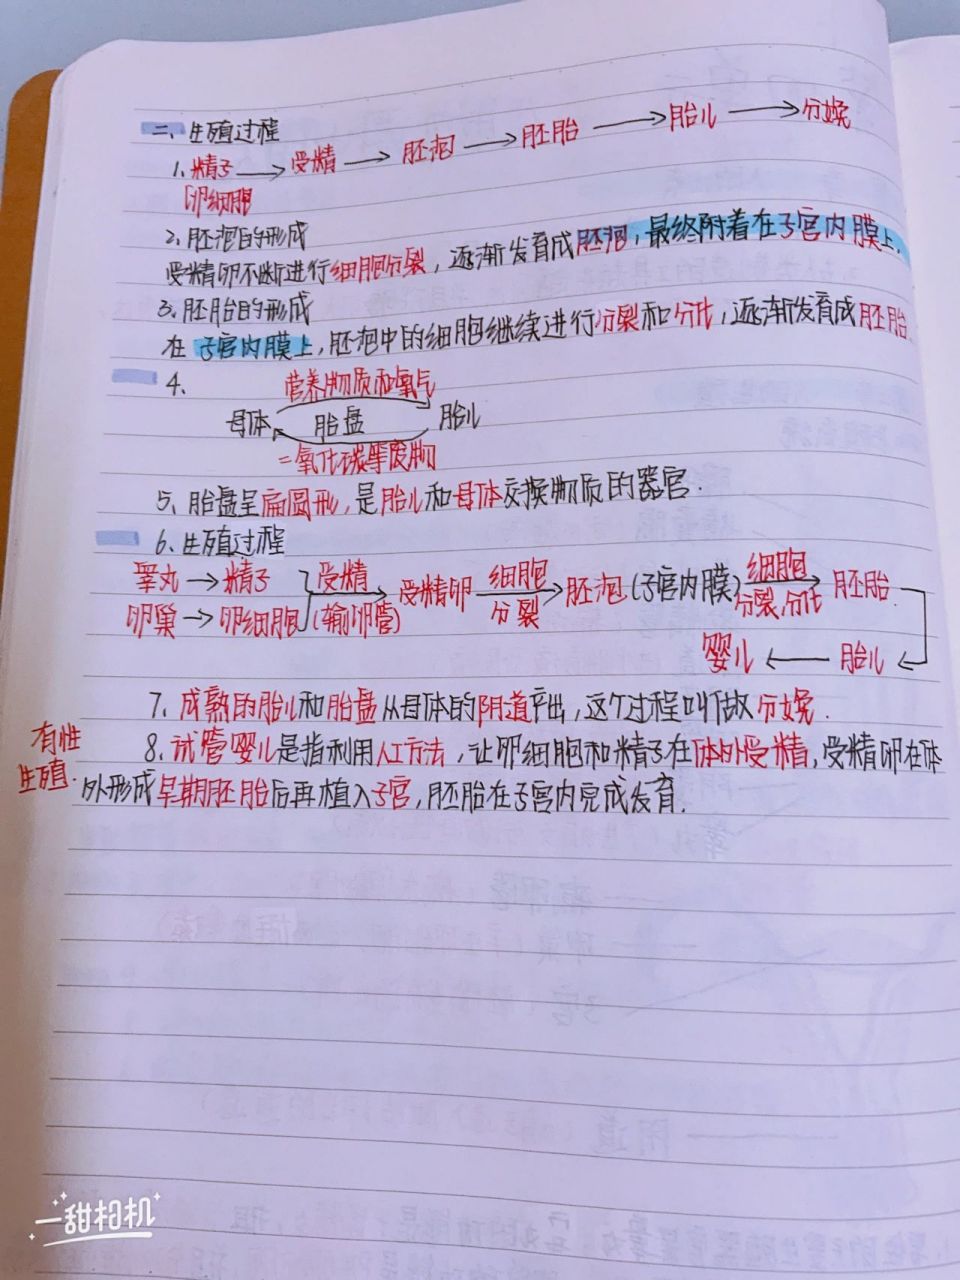 二、生殖过程
1.精子→受精→胚泡→胚胎→胎儿→分娩
卵细胞
2.胚泡的形成
受精卵不断进行细胞分裂，逐渐发育成胚泡，最终附着在子宫内膜上.
3.胚胎的形成
在子宫内膜上，胚泡中的细胞继续进行分裂和分化，逐渐发育成胚胎.
4、
营养物质和氧气
母体 胎盘 胎儿
二氧化碳等废物
5、胎盘呈扁圆形，是胎儿和母体交换物质的器官.
6、生殖过程
睾丸→精子 受精 细胞 细胞
受精卵→胚泡(子宫内膜)→胚胎
卵巢→卵细胞 (输卵管) 分裂 分裂、分化
婴儿←胎儿←
7、成熟的胎儿和胎盘从母体的阴道产出，这个过程叫做分娩.
有性
生殖.
8、试管婴儿是指利用人工方法，让卵细胞和精子在体外受精，受精卵在体
外形成早期胚胎后再植入子宫，胚胎在子宫内完成发育.
一甜相机